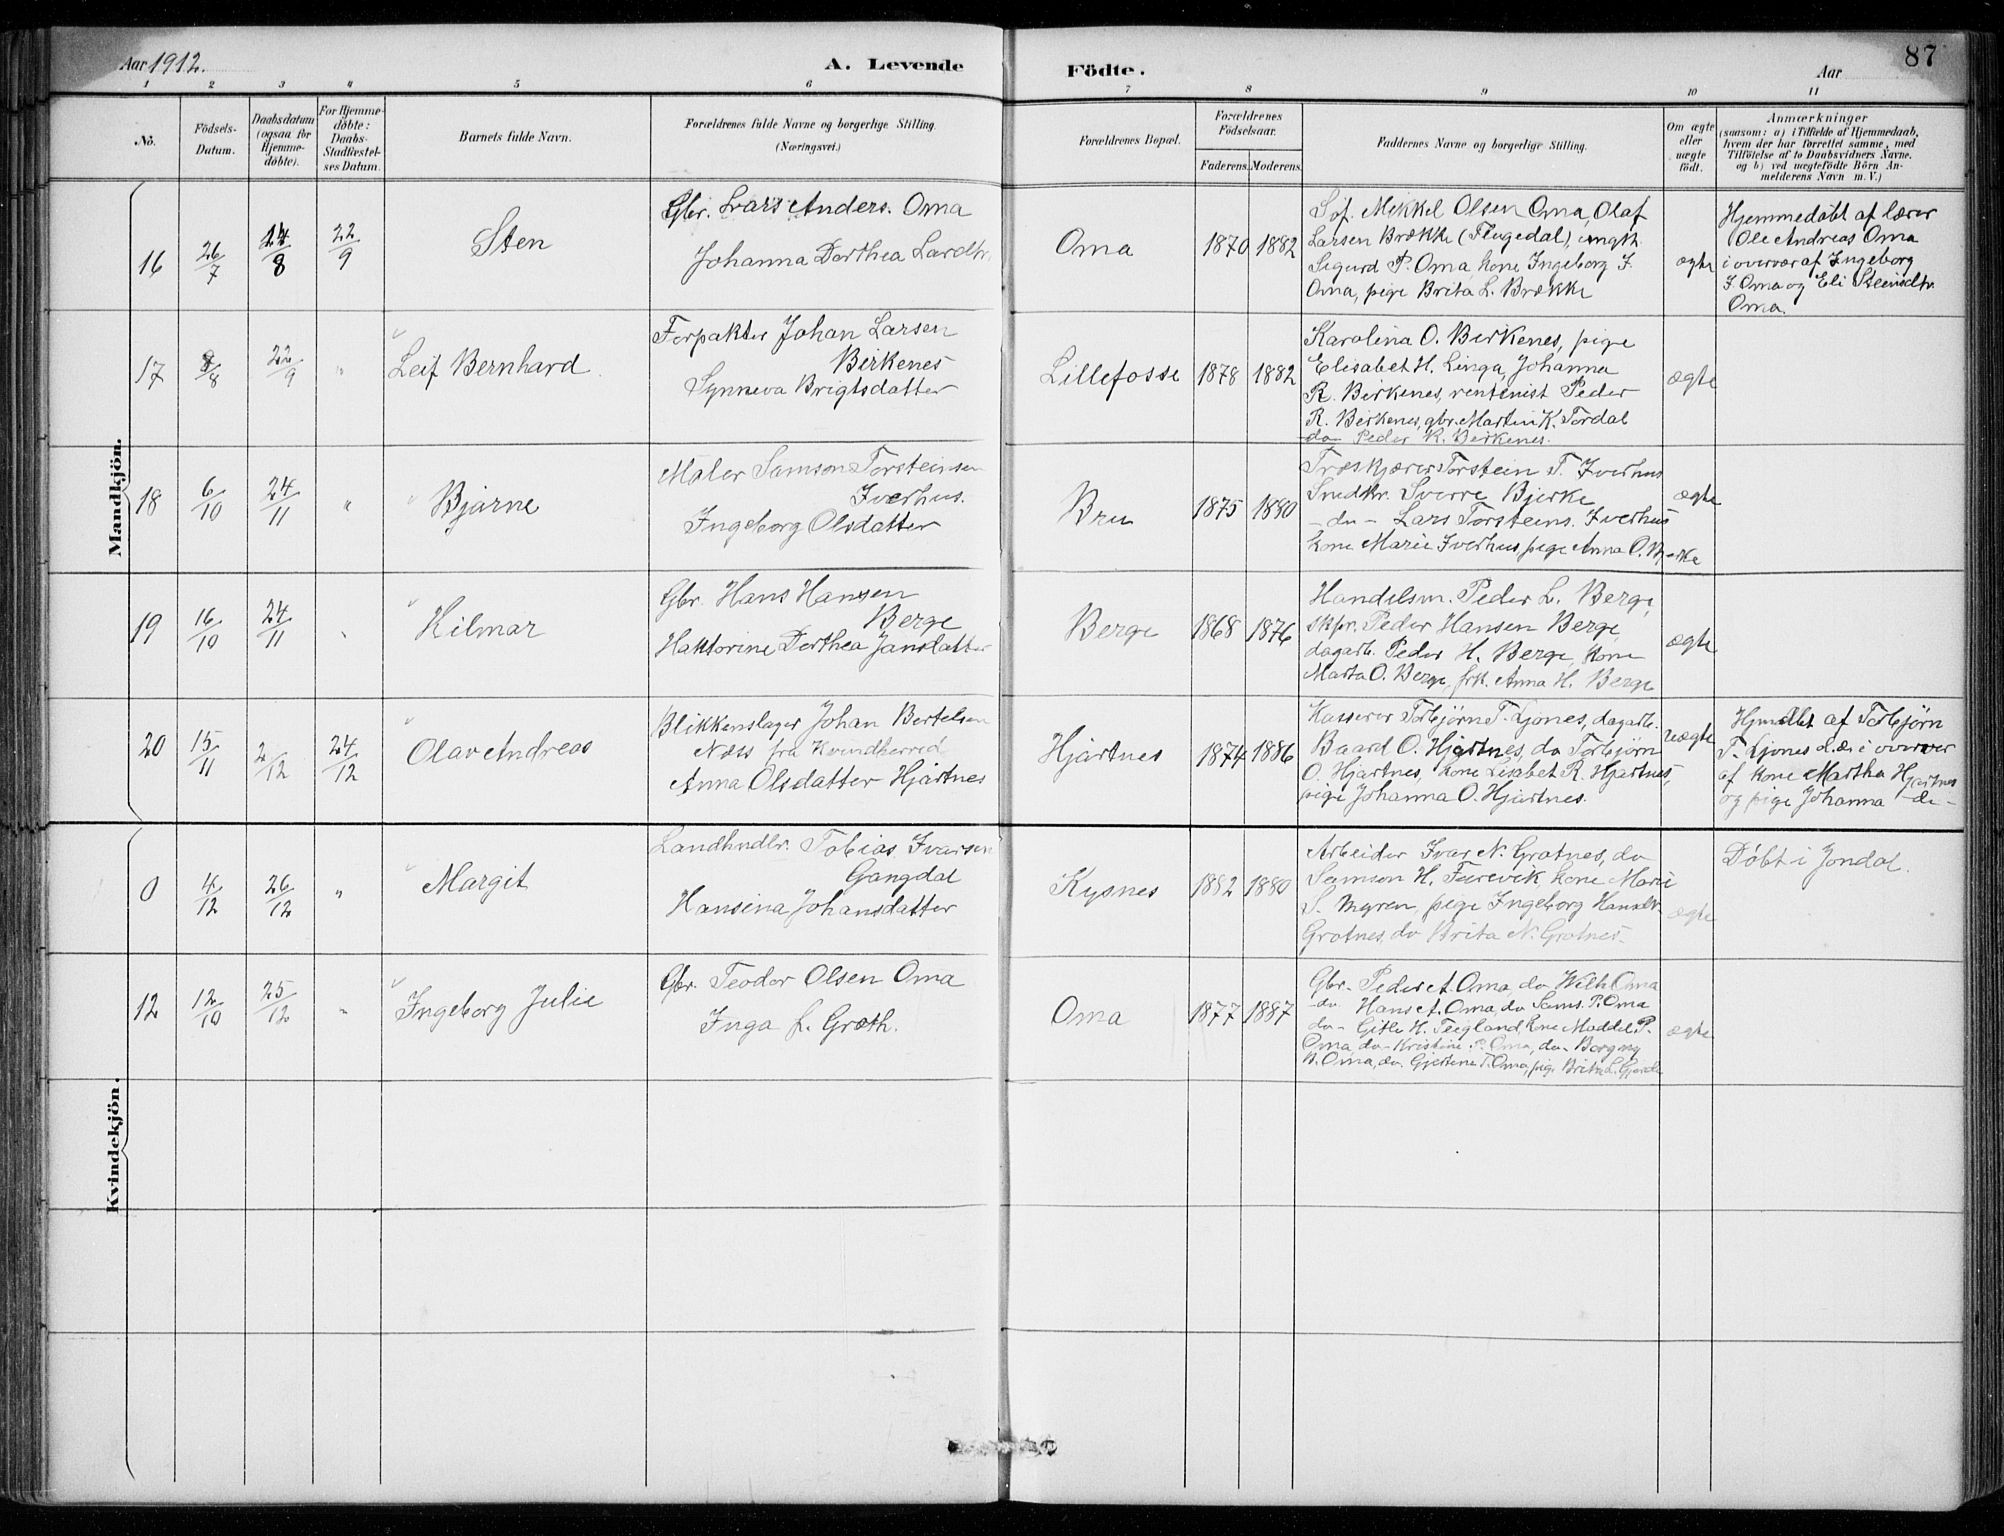 Aar 1912.
A. Levende Födte.
Aar
87
1 2 3 4 5 6 7 8 9 10 11
No.
Födsels-
Datum.
Daabsdatum
(ogsaa for
Hjemme-
döbte).
For Hjemme-
döbte:
Daabs-
Stadfæstel-
ses Datum.
Barnets fulde Navn.
Forældrenes fulde Navne og borgerlige Stilling.
(Næringsvei.)
Forældrenes Bopæl.
Forældrenes
Födselsaar.
Faderens. Moderens.
Faddernes Navne og borgerlige Stilling.
Om ægte
eller
uægte
födt.
Anmærkninger
(saasom: a) i Tilfælde af Hjemmedaab,
hvem der har forrettet samme, med
Tilföielse af to Daabsvidners Navne.
og b) ved uægtefödte Börn An-
melderens Navn m. V.)
Mandkjön.
16 26/7 /8 22/9 Sten
Gbr. Lars Anders. Oma
Johanna Dorthea Lardtr.
Oma 1870 1882
Sof. Mikkel Olsen Oma, Olaf
Larsen Brække (Flugedal), ungk.
Sigurd P. Oma kone Ingeborg J.
Oma, pige Brita L. Brække
ægte
Hjemmedøbt af lærer
Ole Andreas Oma
i overvær af Ingeborg
J. Oma og Eli Steinsdtr.
Oma.
17 /8 22/9 " Leif Bernhard
Forpakter Johan Larsen
Birkenes
Synneva Brigtsdatter
Lillefosse 1878 1882
Karolina O. Birkenes, pige
Elisabet H. Linga, Johanna
R. Birkenes, rentenist Peder
R. Birkenes, gbr. Martin K. Tordal
do Peder K. Birkenes.
ægte
18 6/10 24/11 " Bjarne
Maler Samson Torsteinsen
Iverhus.
Ingeborg Olsdatter
Bru 1875 1880
Træskjærer Torstein T. Iverhus
Snedkr. Sverre Bjerke
- do - Lars Torsteins. Iverhus
kone Marie Iverhus, pige Anna O. Bjerke
ægte
19 16/10 24/11 " Hilmar
Gbr. Hans Hansen
Berge
Haktorine Dorthea Jansdatter
Berge 1868 1876
Handelsm. Peder L. Berge,
skpr. Peder Hansen Berge
dagarb. Peder H. Berge, kone
Marta O. Berge, frk. Anna H. Berge
ægte
20 15/11 2/12 24/12 Olav Andreas
Blikkenslager Johan Bertelsen
Næss fra Kvindherred
Anna Olsdatter Hjartnes
Hjartnes 1874 1886
Kasserer Torbjørn T. Ljones, dagarb.
Baard O. Hjartnes, do Torbjørn
O. Hjartnes, kone Lisabet R. Hjartnes,
pige Johanna O. Hjartnes.
uægte
Hjmdbt af Torbjørn
T. Ljones i overvær
af kone Martha Hjartnes
og pige Johanna - do -
Kvindekjön.
0 4/12 26/12 " Margit
Landhndlr. Tobias Ivarsen
Gangdal
Hansina Johansdatter
Kysnes 1882 1880
Arbeider Ivar N. Grotnes, do
Samson H. Furevik kone Marie
S. Myren, pige Ingeborg Hansdtr
Grotnes, do Brita N. Grotnes.
ægte
Døbt i Jondal.
12 12/10 25/12 " Ingeborg Julie
Gbr. Teodor Olsen Oma
Inga f. Groth.
Oma 1877 1887
Gbr. Peder A. Oma, do Wilh. Oma
do Hans A. Oma, do Sams. P. Oma
do - Gitle H. Teigland, kone Maddel P.
Oma, do - Kristine P. Oma, do - Borgny
B. Oma, do. Gjertine T. Oma, pige Brita L. Gjerde
ægte